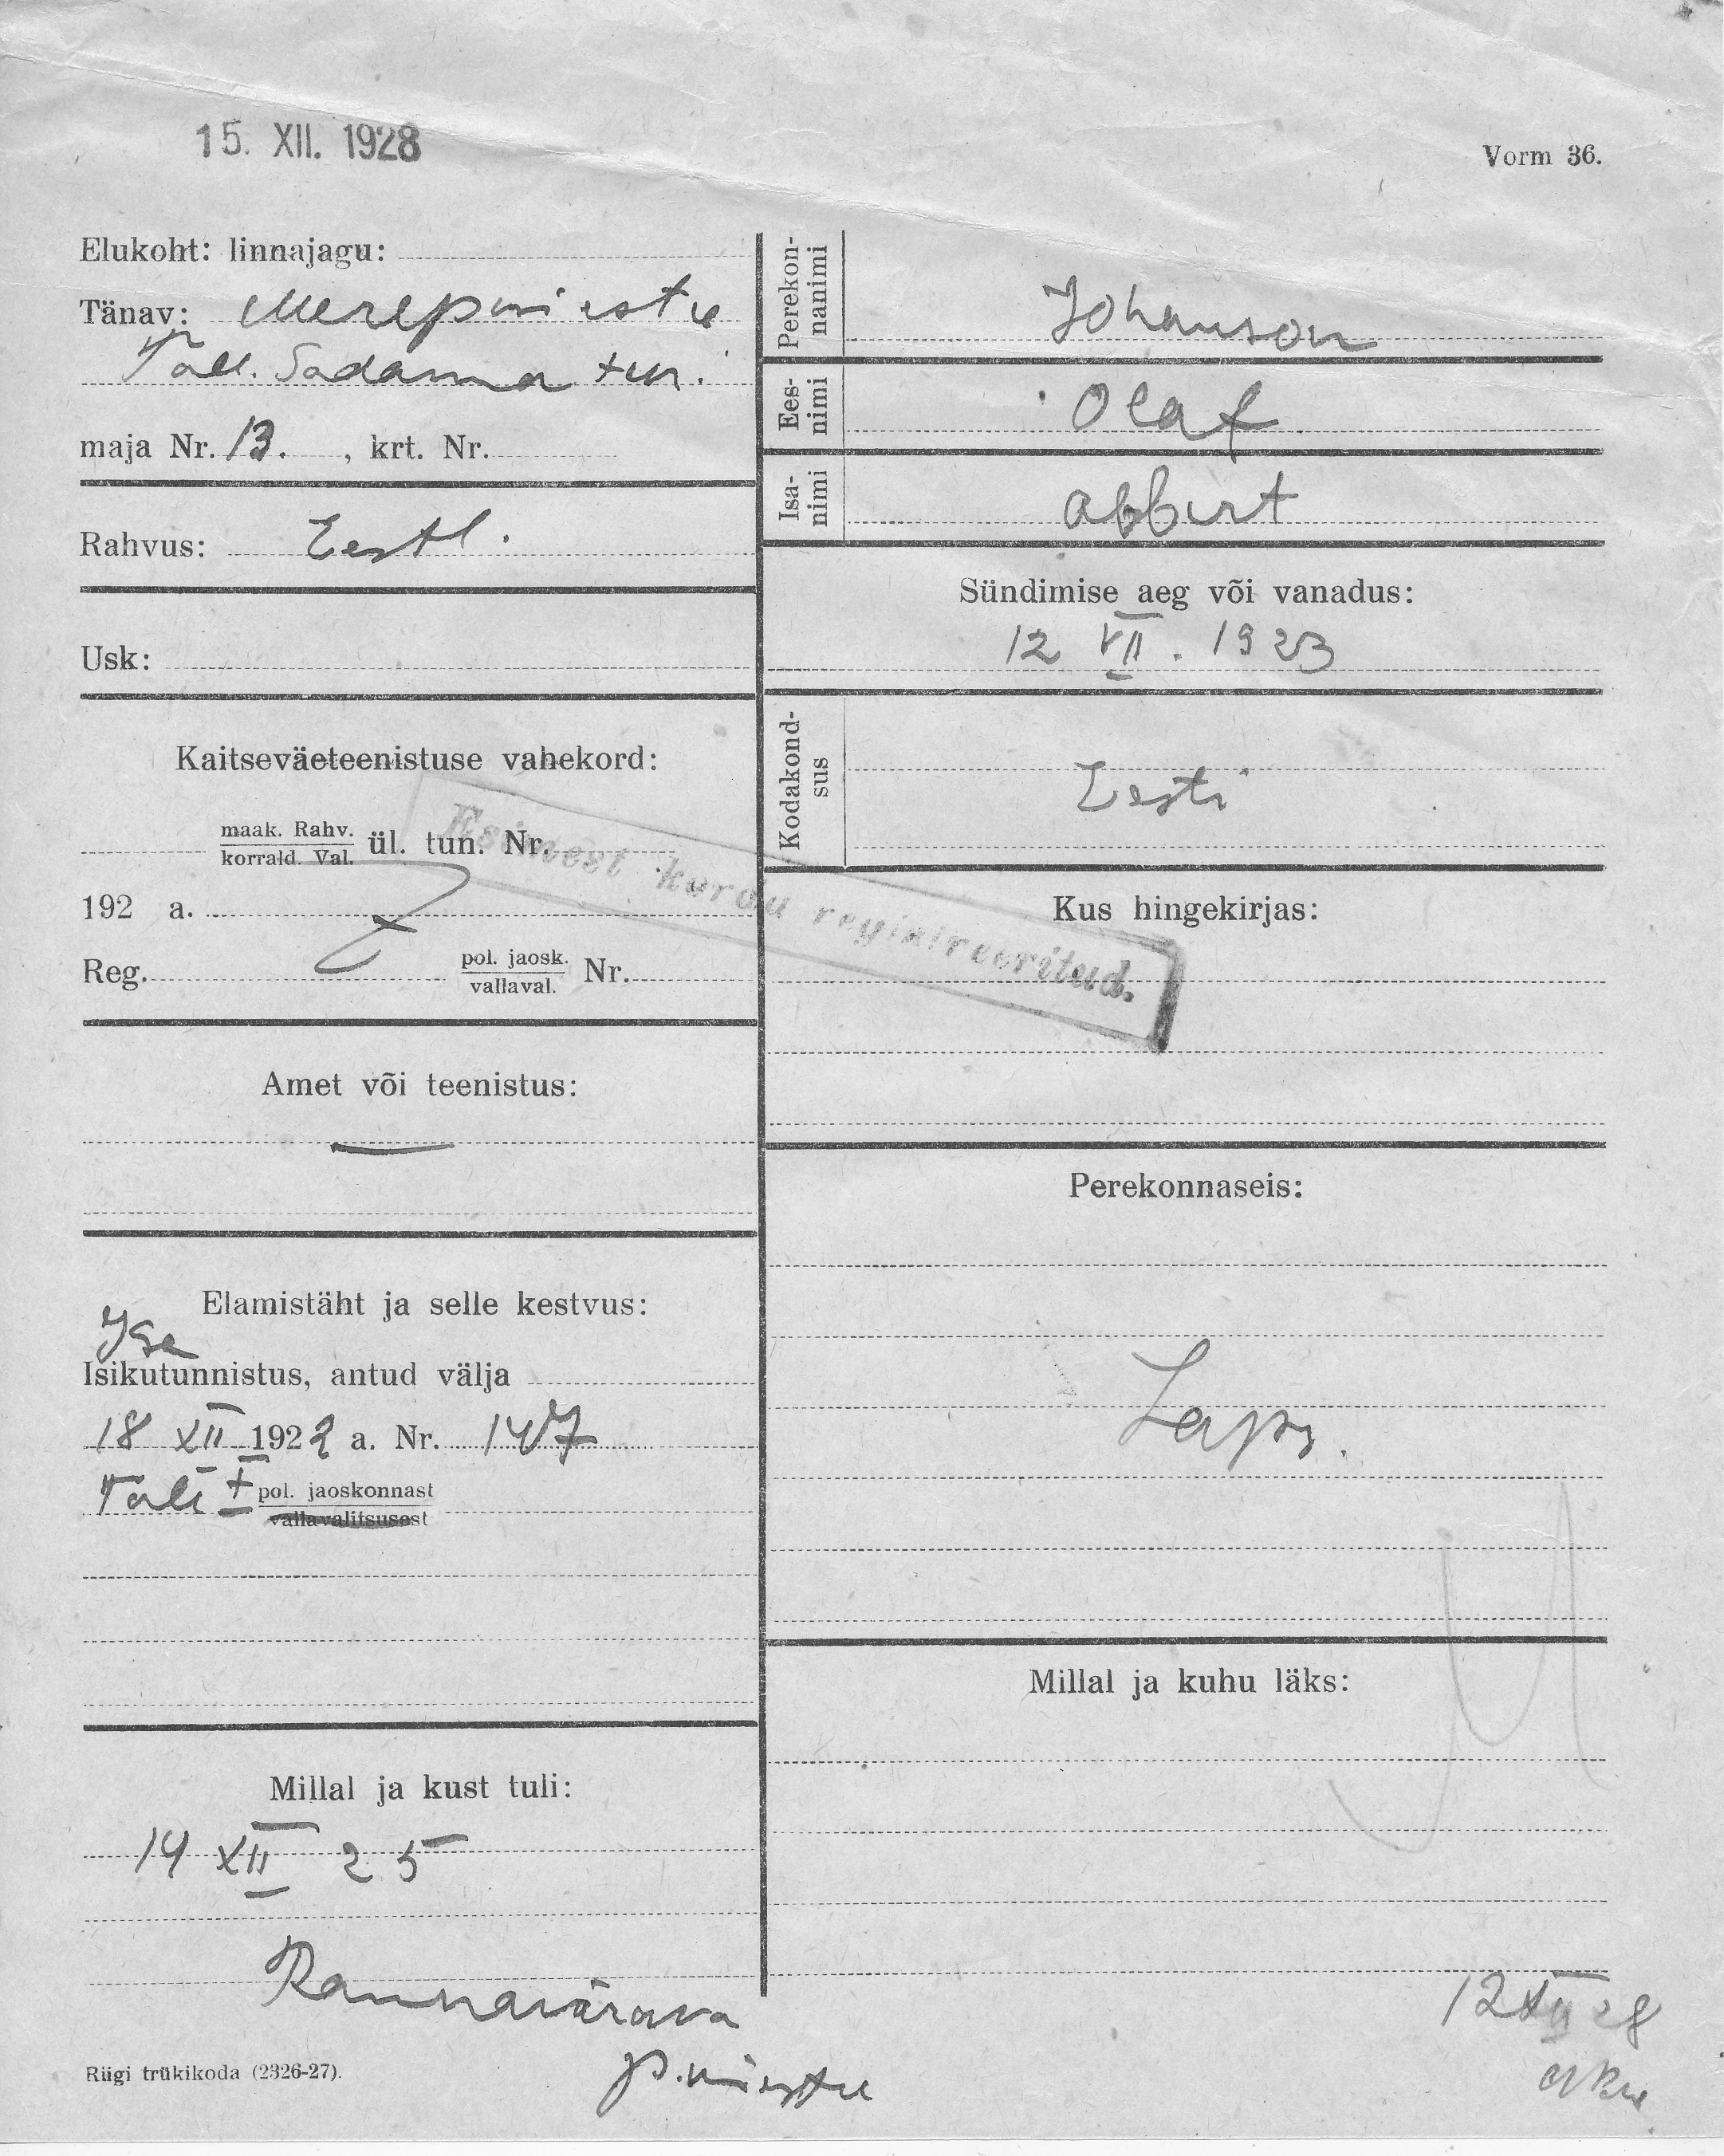 15. XII. 1928
Vorm 36.
Elukoht: linnajagu:
Tänav: Merepuiestee
Tall. Sadama tän.
maja Nr. 13. , krt. Nr.
Rahvus: Eestl.
Usk:
Kaitseväeteenistuse vahekord:
maak. Rahv.
korrald. Val. ül. tun. Nr.
192 a.
Reg. pol. jaosk.
vallaval. Nr.
Amet või teenistus:
—
Elamistäht ja selle kestvus:
Isa
Isikutunnistus, antud välja
18 XII 1922 a. Nr. 147
Tall I pol. jaoskonnast
vallavalitsusest
Millal ja kust tuli:
14 XII 25
Rannavärava
puiestee
Riigi trükikoda (2326-27).
Perekon-
nanimi
Johanson
Ees-
nimi
Olaf
Isa-
nimi
Sündimise aeg või vanadus:
12 VII. 1923
Kodakond-
sus
Eesti
Esimest korda registreeritud.
Kus hingekirjas:
Perekonnaseis:
Laps.
Millal ja kuhu läks:
12 XII 28